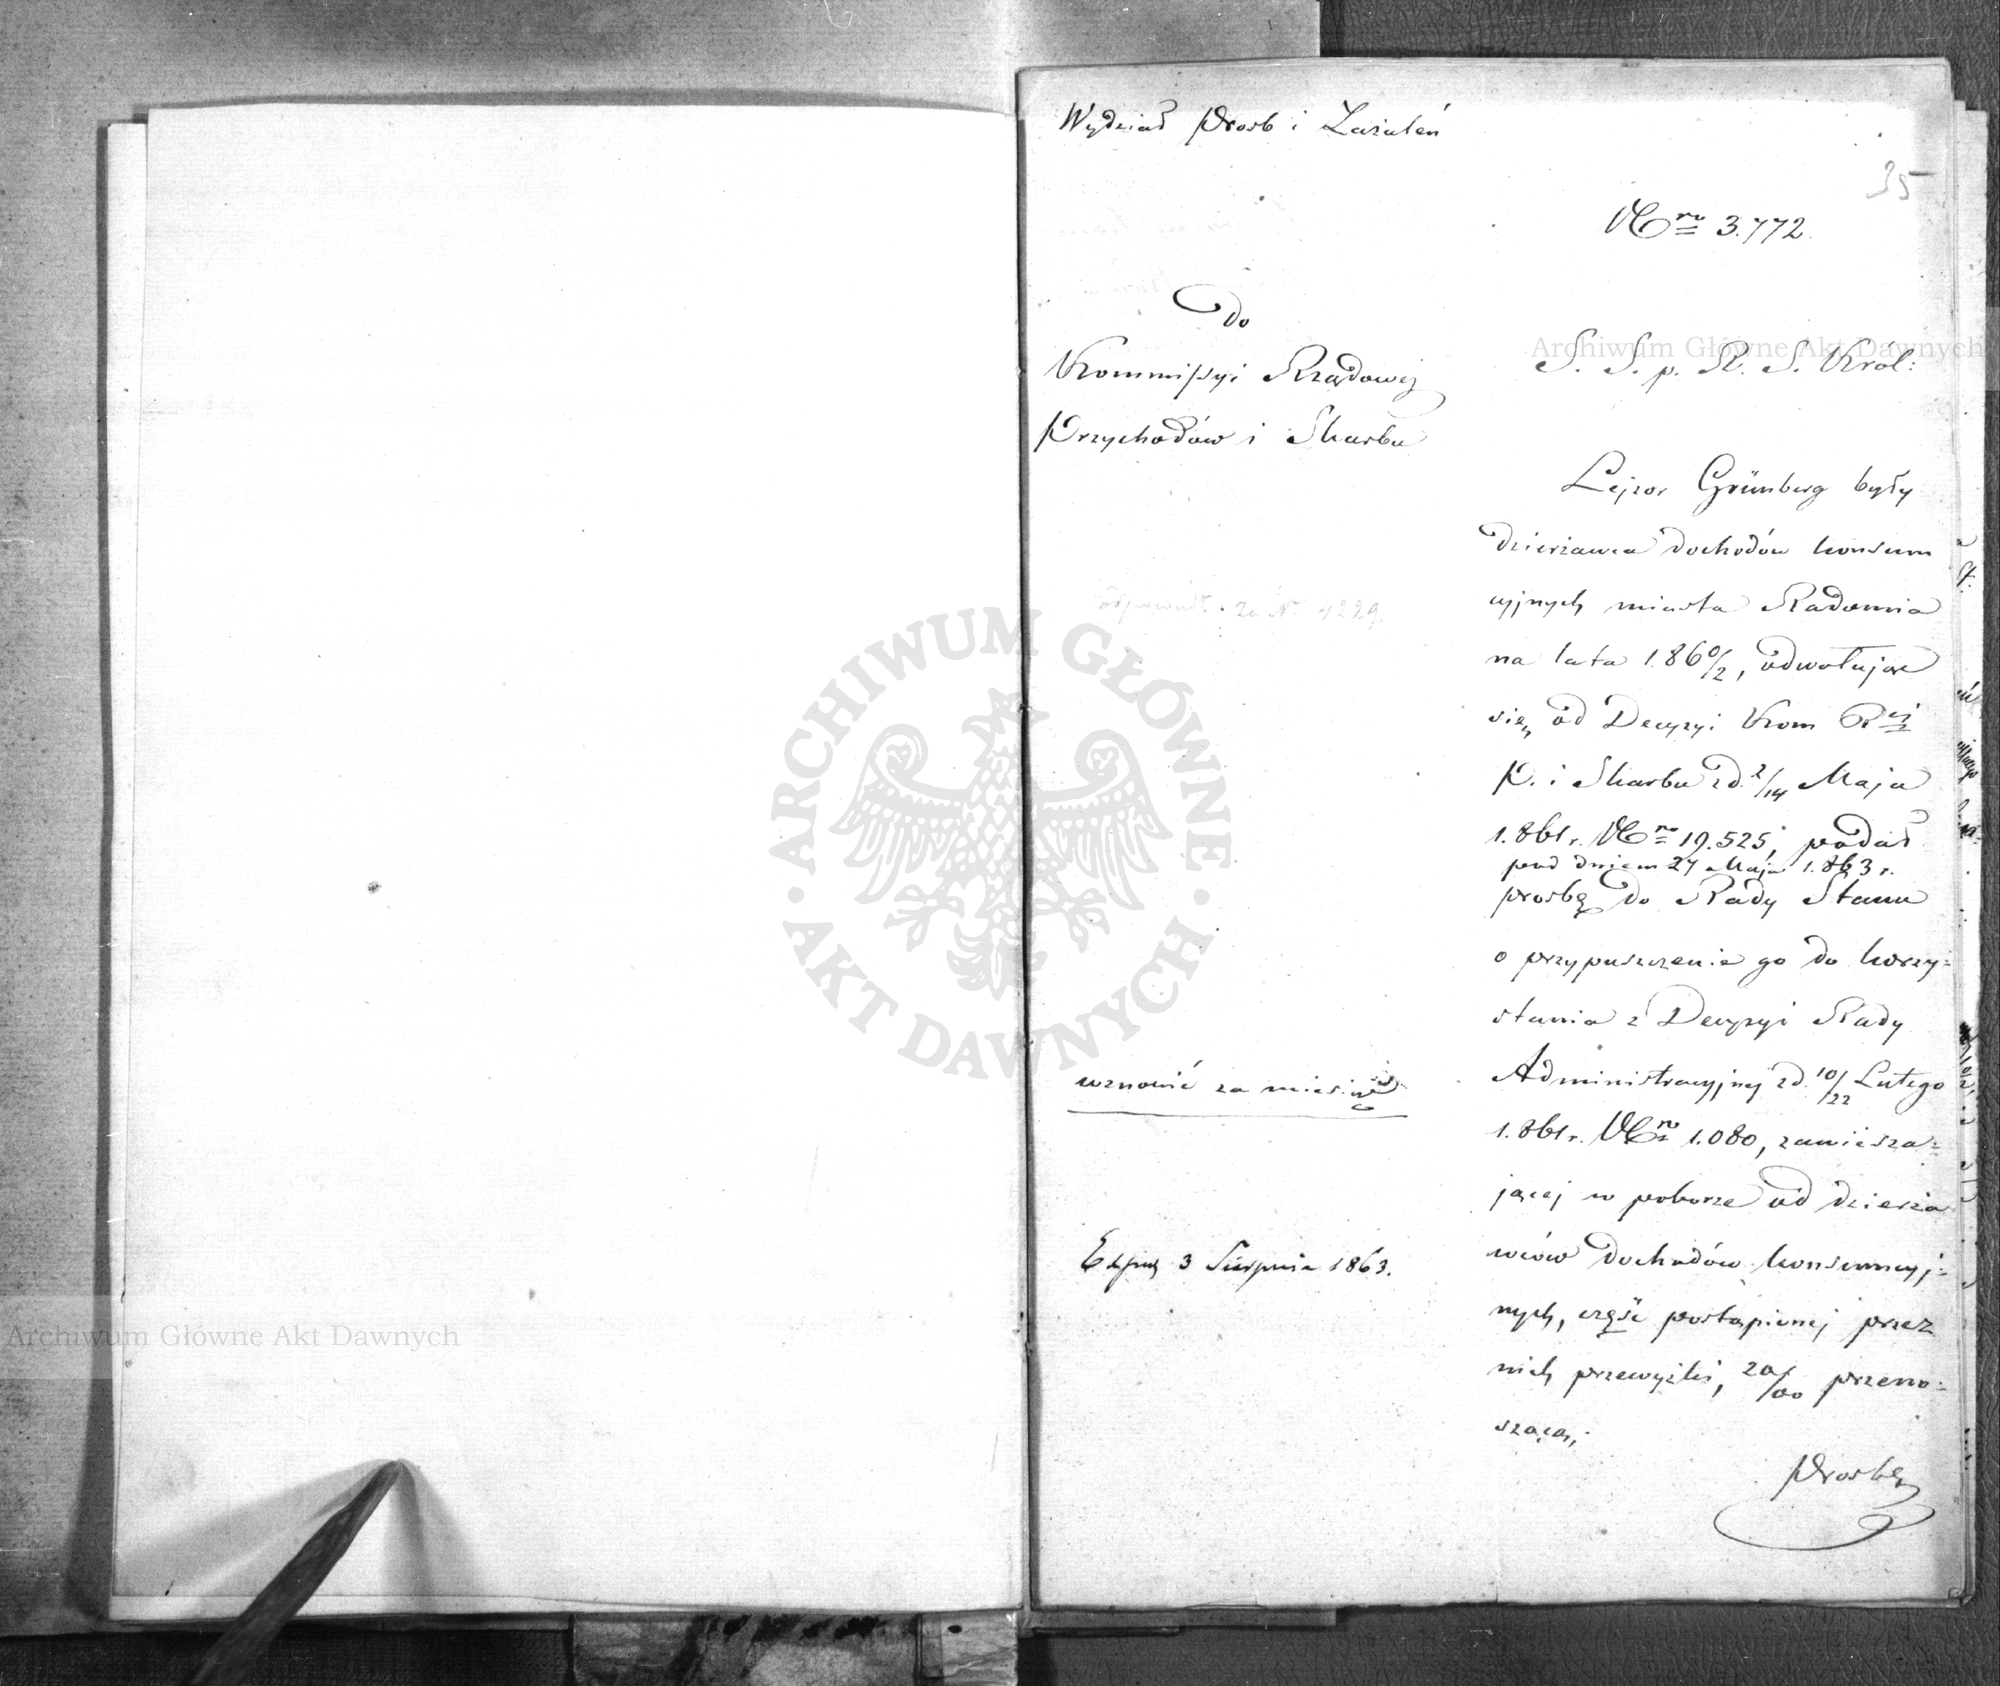 Wydział Prośb i Zażaleń
35
Nro 3.772.
Do
Kommissyi Rządowej
Przychodów i Skarbu
S. S. p. R. S. Król:
Lejzor Grünberg były
dzierżawca dochodów konsum
cyjnych miasta Radomia
na lata 1.860/2, odwołując
się od Decyzyi Kom Rej
P. i Skarbu z d. 2/14 Maja
1.861 r. Nro 19.525, podał
pod dniem 27 Maja 1.863 r.
prośbę do Rady Stanu
o przypuszczenie go do korzy=
stania z Decyzyi Rady
Administracyjnej z d. 10/22 Lutego
1.861 r. Nro 1.080, zawiesza=
jącej w poborze od dzierża
wców dochodów konsumcyj=
nych, część postąpionej przez
nich przewyżki, 20/00 przeno=
szącą;
Prośbę
wznowić za miesiąc
Exped 3 Sierpnia 1863.
Archiwum Główne Akt Dawnych
Archiwum Główne Akt Dawnych
ARCHIWUM GŁÓWNE · AKT DAWNYCH ·